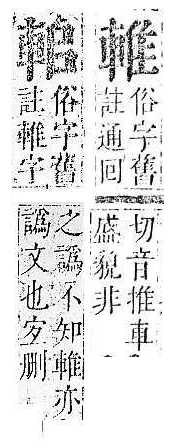 俗字舊
註通回
切音推車
盛貌非
俗字舊
註 字
之譌不知 亦
譌文也宐删